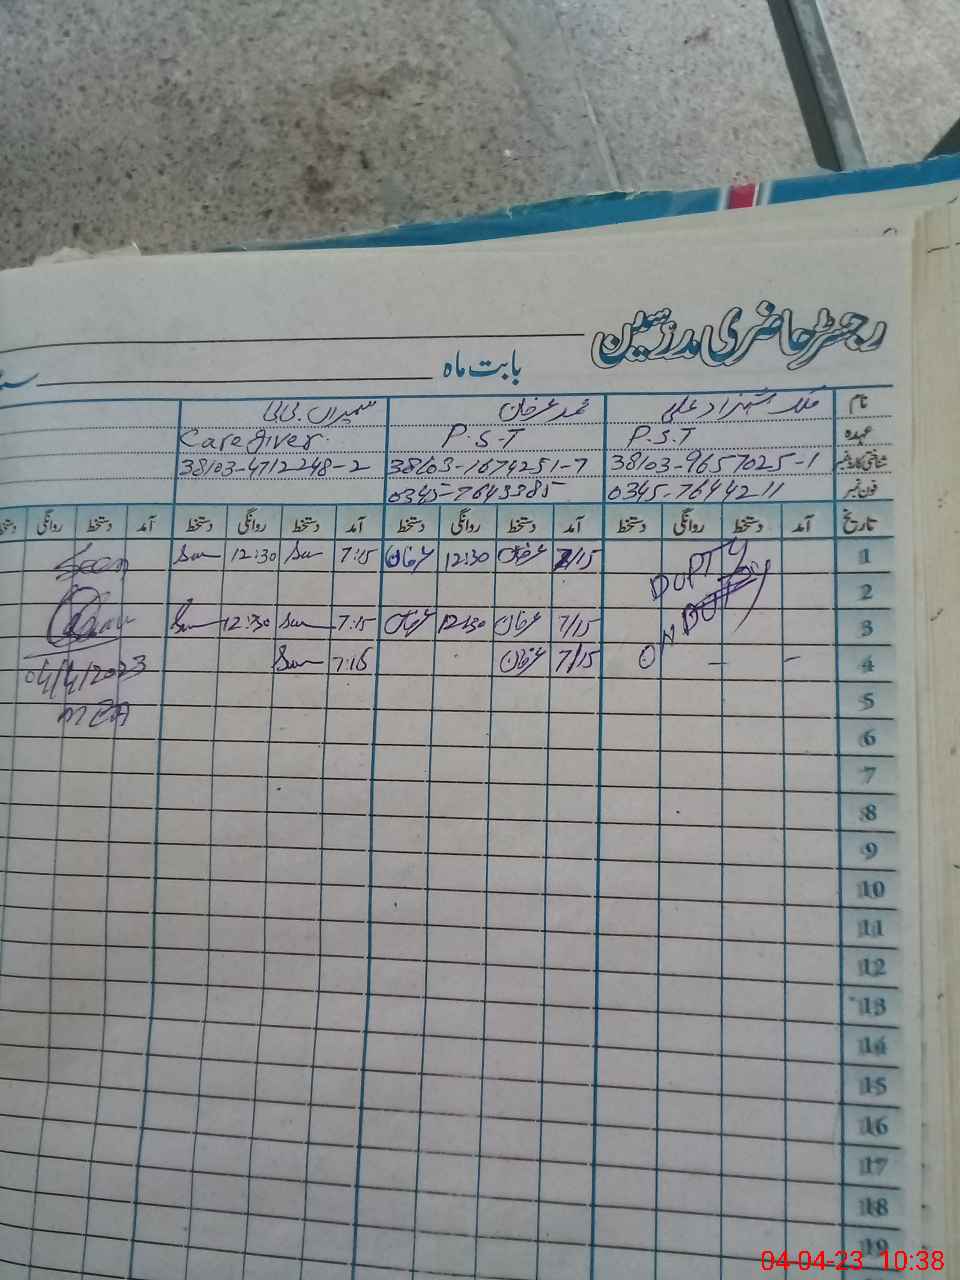 رجسٹر حاضری مدرسین
بابت ماہ
نام ملک شہزاد علی محمد عرفان سمیراں بی بی
عہدہ P.S.T P.S.T Care giver.
شناختی کارڈ نمبر 38103-9657025-1 38103-1674251-7 38103-4712248-2
فون نمبر 0345-7644211 0345-7643385
تاریخ آمد دستخط روانگی دستخط آمد دستخط روانگی دستخط آمد دستخط روانگی دستخط آمد دستخط روانگی دستخط
1 7/15 عرفان 12:30 عرفان 7:15 12:30 Seen
2 ON DUTY
3 7/15 عرفان 12:30 عرفان 7:15 12:30
4 - - 7/15 عرفان 7:15 04/4/2023
5 MEA
6
7
8
9
10
11
12
13
14
15
16
17
18
19
04-04-23 10:38